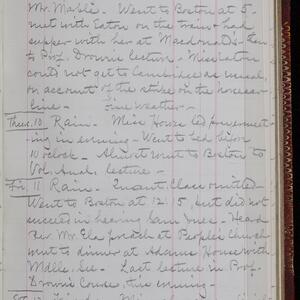 Mr. Mabie - Went to Boston at 5-
met with Eaton on the train & had
supper with her at Macdonald's - then
to Prof. Drown's lecture - Miss Eaton
could not get to Cambridge as usual,
on account of the strike on the horsecar
line - Fine weather -
Thurs. 10. Rain - Miss House led prayer meet-
ing in evening - Went to bed before
10 o'clock - Almost went to Boston to
Vol. Anal. lecture -
Fri. 11 Rain - Class omitted -
Went to Boston at 12.15, but did not
succeed in hearing Sam Jones - Heard
Rev. Mr. at People's Church
went to dinner at Adams House with
Mdlle. See - Last lecture in Prof.
Drown's Course, this evening -